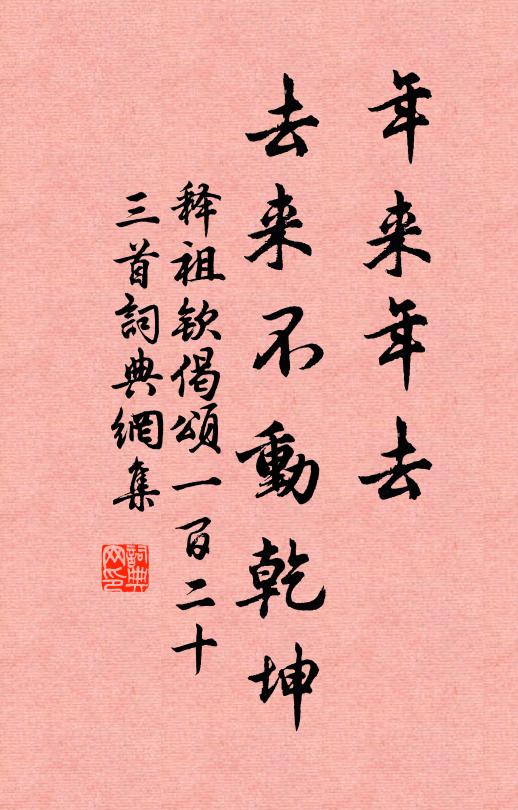 年来年去
去来不動乾坤
释祖钦偈頌一百二十
三首詞典網集
詞典
网印